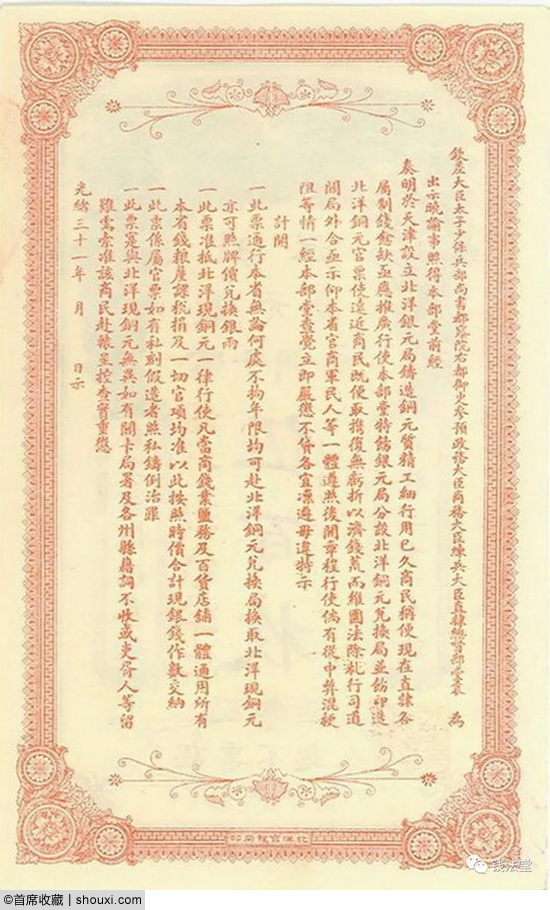 欽差大臣太子少保兵部尚書都察院右都御史參預政務大臣商務大臣練兵大臣直隸總督部堂袁 為
出示曉諭事照得本部堂前經
奏明於天津設立北洋銀元局鑄造銅元質精工細行用已久商民稱便現在直隸各
屬制錢餘缺亟應推廣行使本部堂特飭銀元局分設北洋銅元兌換局並飭印造
北洋銅元官票使遠近商民既便取攜復無虧折以濟錢荒而維圜法除札行司道
關局外合亟示仰本省官商軍民人等一體遵照後開章程行使倘有從中弊混梗
阻等情一經本部堂查覺立即嚴懲不貸各宜凜遵毋違特示
計開
一此票通行本省無論何處不拘年限均可赴北洋銅元兌換局換取北洋現銅元
亦可照牌價兌換銀兩
一此票准抵北洋現銅元一律行使凡當商錢業鹽務及百貨店鋪一體通用所有
本省錢糧釐課稅捐及一切官項均准以此按照時價合計現銀錢作數交納
一此票係屬官票如有私刻假造者照私鑄例治罪
一此票定與北洋現銅元無異如有關卡局署及各州縣藉詞不收或吏胥人等留
難需索准該商民赴轅呈控查實重懲
光緒三十一年 月 日示
北洋官報局印
钱法堂
©首席收藏 | shouxi.com